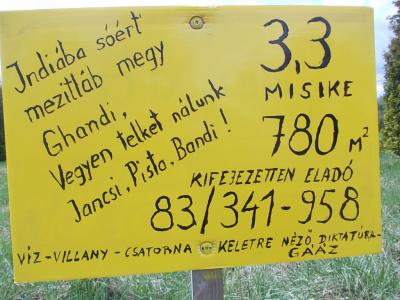 Indiába sóért
mezitláb megy
Ghandi,
Vegyen telket nálunk
Jancsi, Pista, Bandi!
3,3
MISIKE
780 M²
KIFEJEZETTEN ELADÓ
83/341-958
VÍZ-VILLANY-CSATORNA KELETRE NÉZŐ, DIKTATÚRA-
GÁÁZ